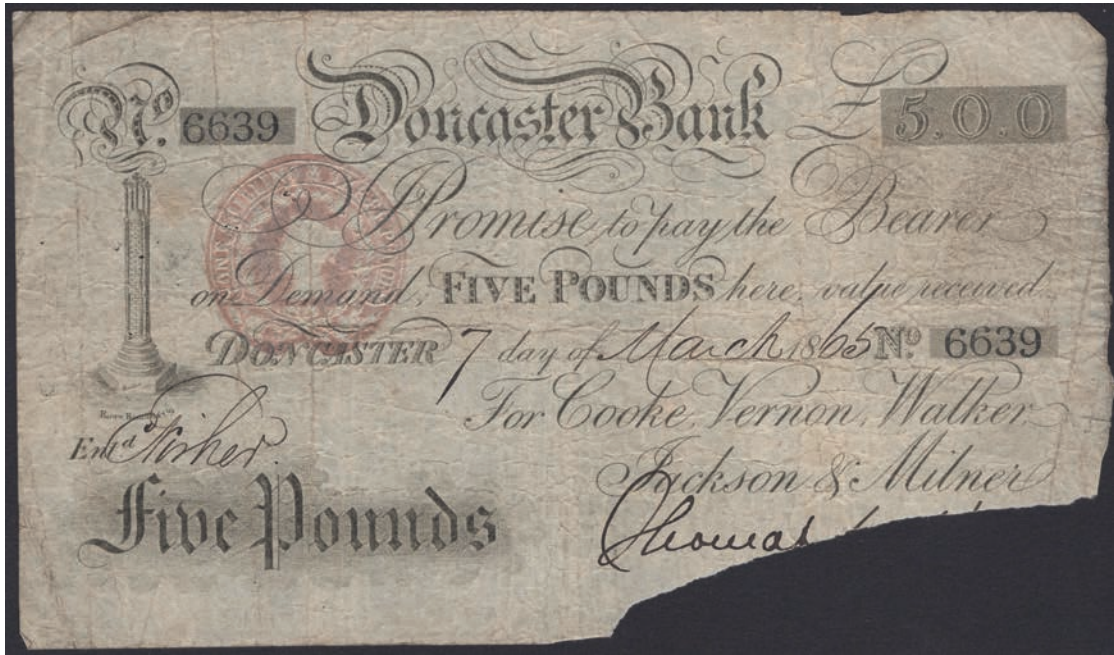 No. 6639 Doncaster Bank £ 5.0.0
I Promise to pay the Bearer
one Demand, FIVE POUNDS here, value received.
DONCASTER 7 day of March 1865 No. 6639
For Cooke, Vernon, Walker,
Entd
Jackson & Milner
Five Pounds
Thomas